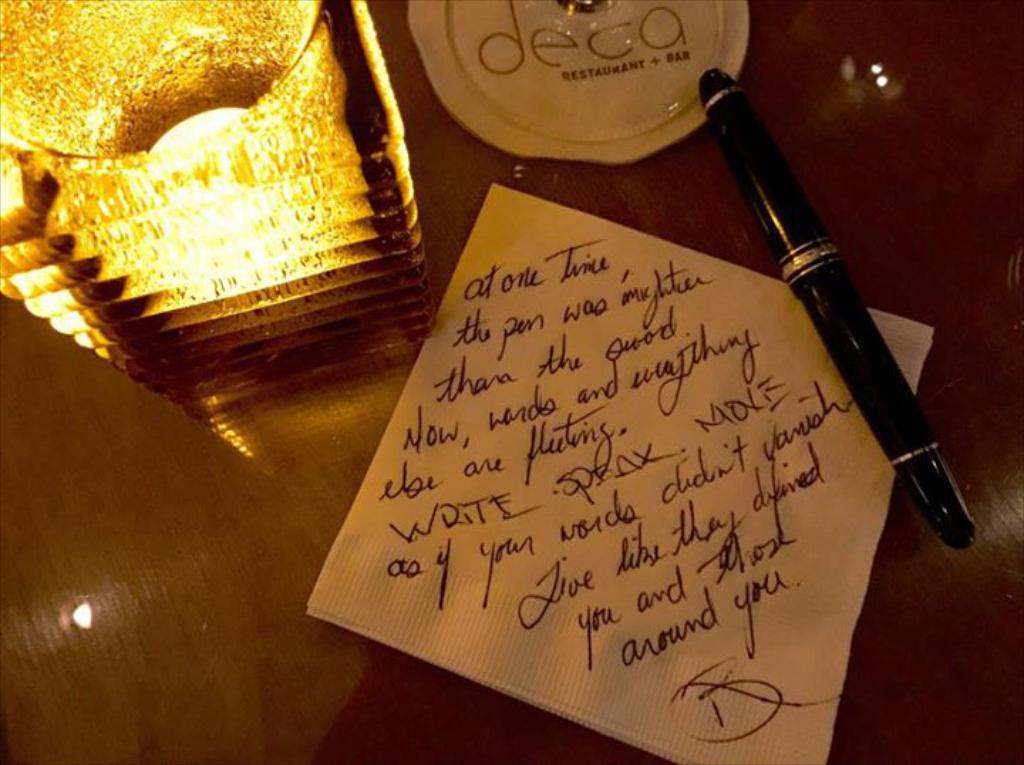 deca
RESTAURANT + BAR
at one time,
the pen was mightier
than the sword.
Now, words and everything
else are fleeting.
WRITE. SPEAK. MOVE
as if your words didn't vanish.
Live like they defined
you and those
around you.